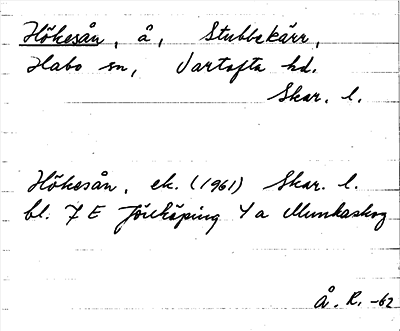 Hökesån, å, Stubbekärr,
Habo sn, Vartofta hd.
Skar. l.
Hökesån, ek. (1961) Skar. l.
bl. 7 E Jönköping 4 a Munkaskog
Å. R. -62